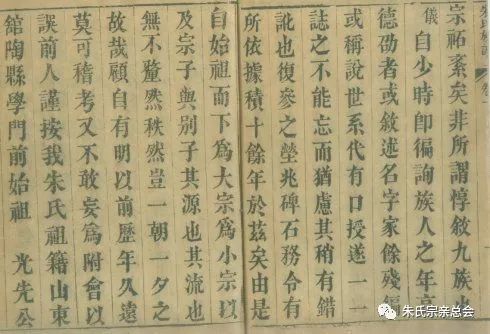 朱氏族
宗祏紊矣非所謂惇敘九族
儀自少時卽徧詢族人之年
德劭者或敘述名字家餘殘
或稱說世系代有口授遂一一
誌之不能忘而猶慮其稍有錯
訛也復參之塋兆碑石務令有
所依據積十餘年於茲矣由是
自始祖而下為大宗為小宗以
及宗子與別子其源也其流也
無不釐然秩然豈一朝一夕之
故哉顧自有明以前歷年久遠
莫可稽考又不敢妄為附會以
誤前人謹按我朱氏祖籍山東
館陶縣學門前始祖 光先公
朱氏宗亲总会